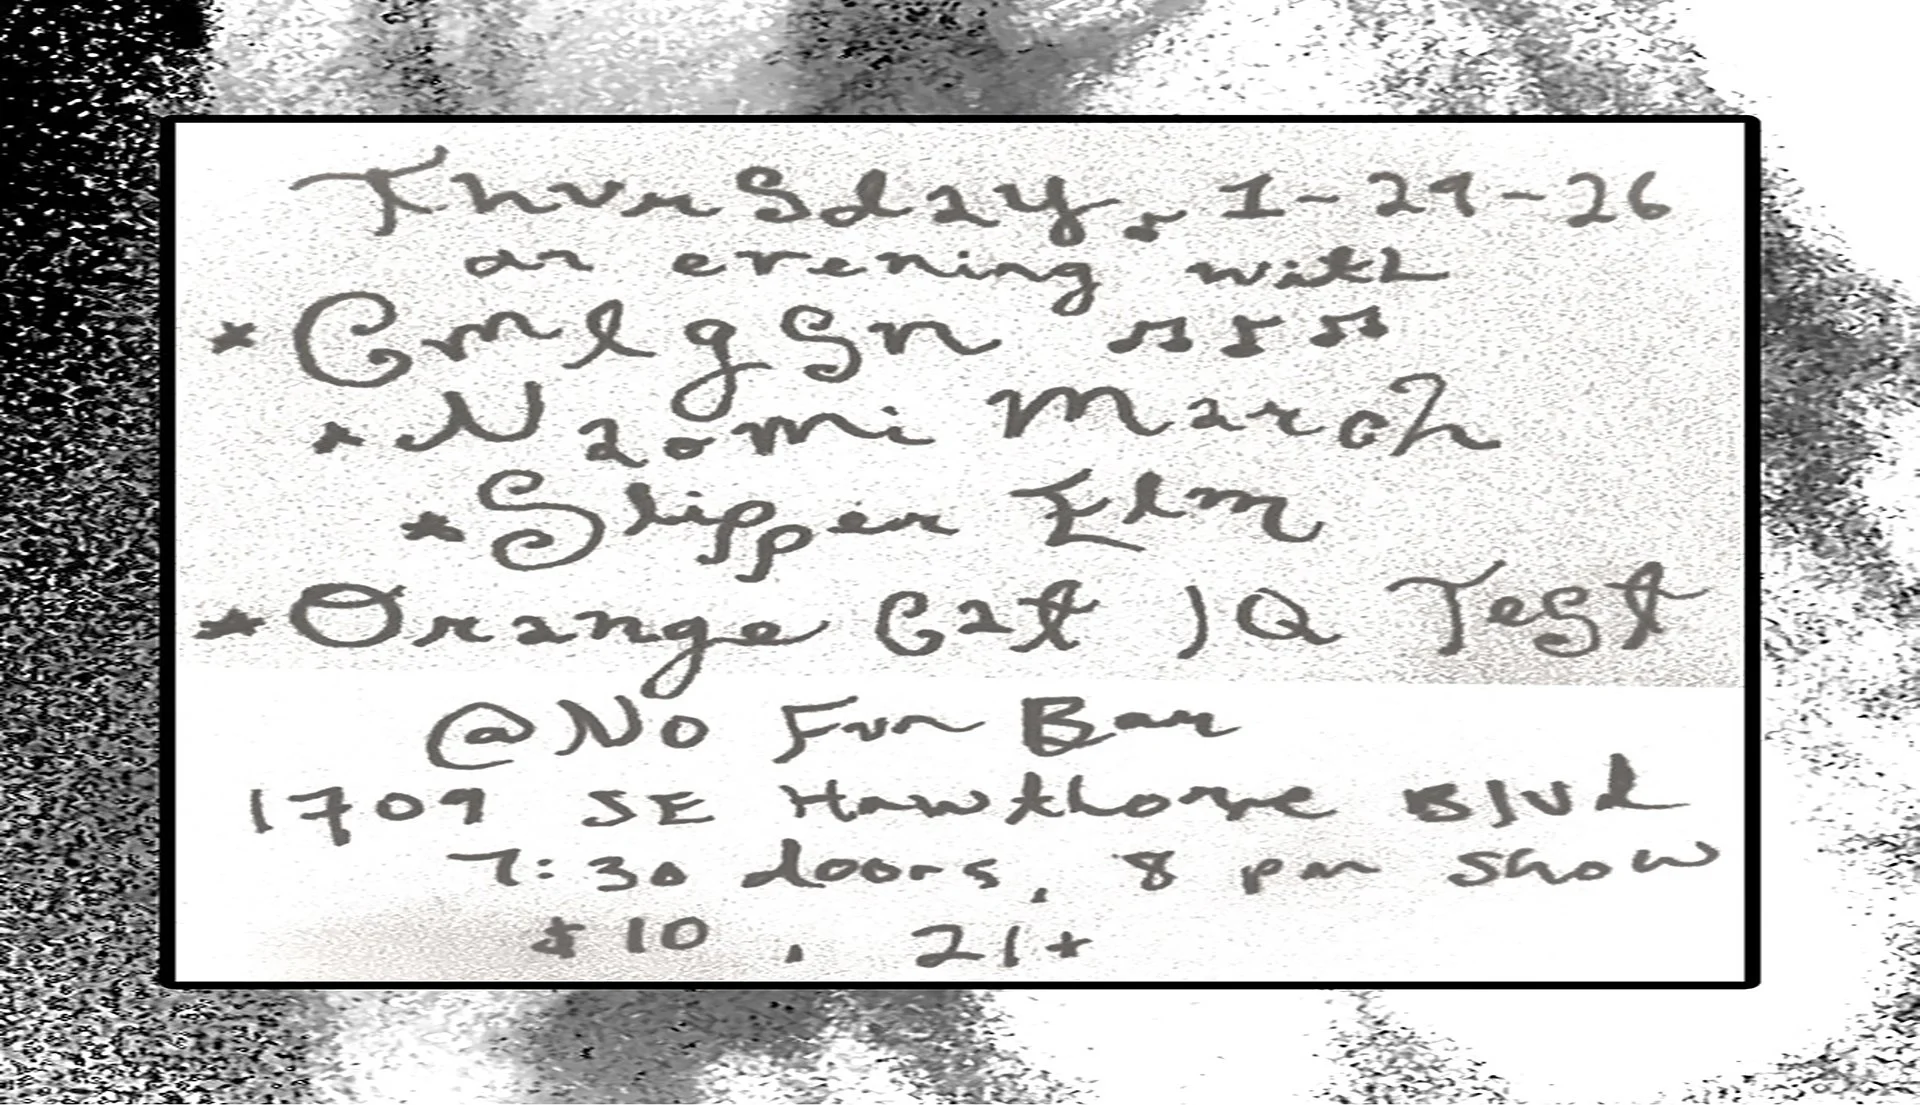 Thursday, 1-29-26
an evening with
* Cmlgsn ♫ ♪ ♫
* Naomi March
* Slipper Elm
* Orange Cat IQ Test
@ No Fun Bar
1709 SE Hawthorne Blvd
7:30 doors, 8 pm show
$10, 21+